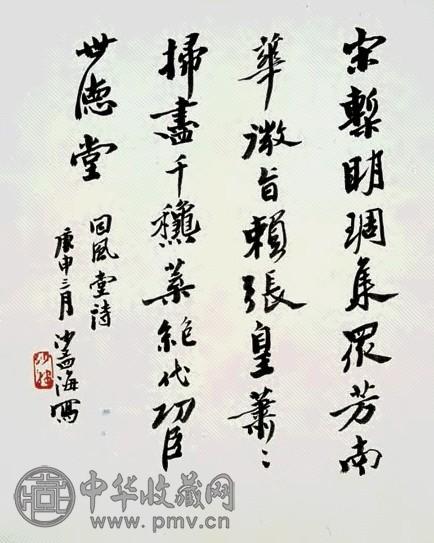 宋槧明琱集眾芳南
華微旨賴張皇蕭〻
掃盡千龝葉絕代功臣
世德堂
回風堂詩
庚申三月沙孟海寫
中华收藏网
www.pmv.cn